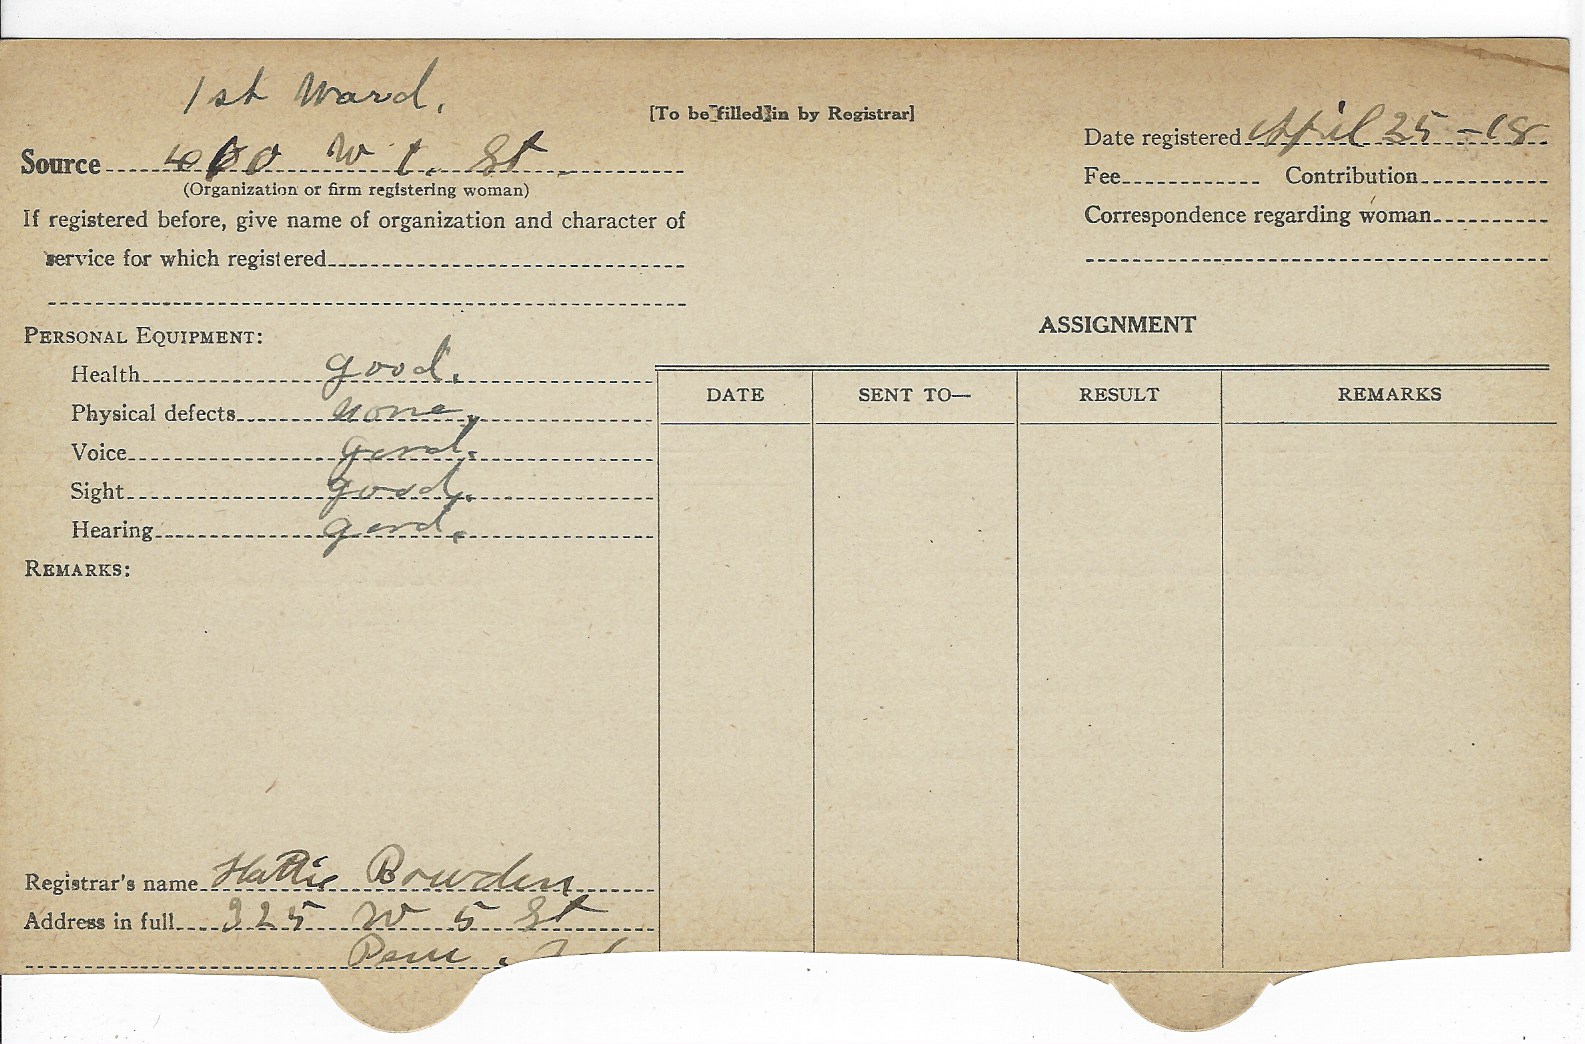 1st Ward.
[To be filled in by Registrar]
Source 400 W 1. St.
(Organization or firm registering woman)
If registered before, give name of organization and character of
service for which registered
PERSONAL EQUIPMENT:
Health good.
Physical defects none.
Voice good.
Sight good.
Hearing good.
REMARKS:
Registrar's name Hattie Bowden
Address in full 325 W 5 St
Peru.
Date registered April 25-18
Fee Contribution
Correspondence regarding woman
ASSIGNMENT
DATE SENT TO— RESULT REMARKS